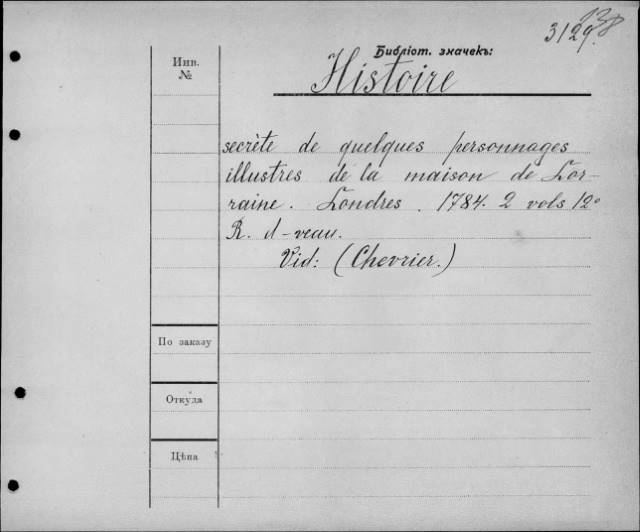 3129.
138
Библіот. значекъ:
Инв.
№
Histoire
secrète de quelques personnages
illustres de la maison de Lor-
raine. Londres. 1784. 2 vols 12º
R. d-veau.
Vid: (Chevrier.)
По заказу
Откуда
Цѣна